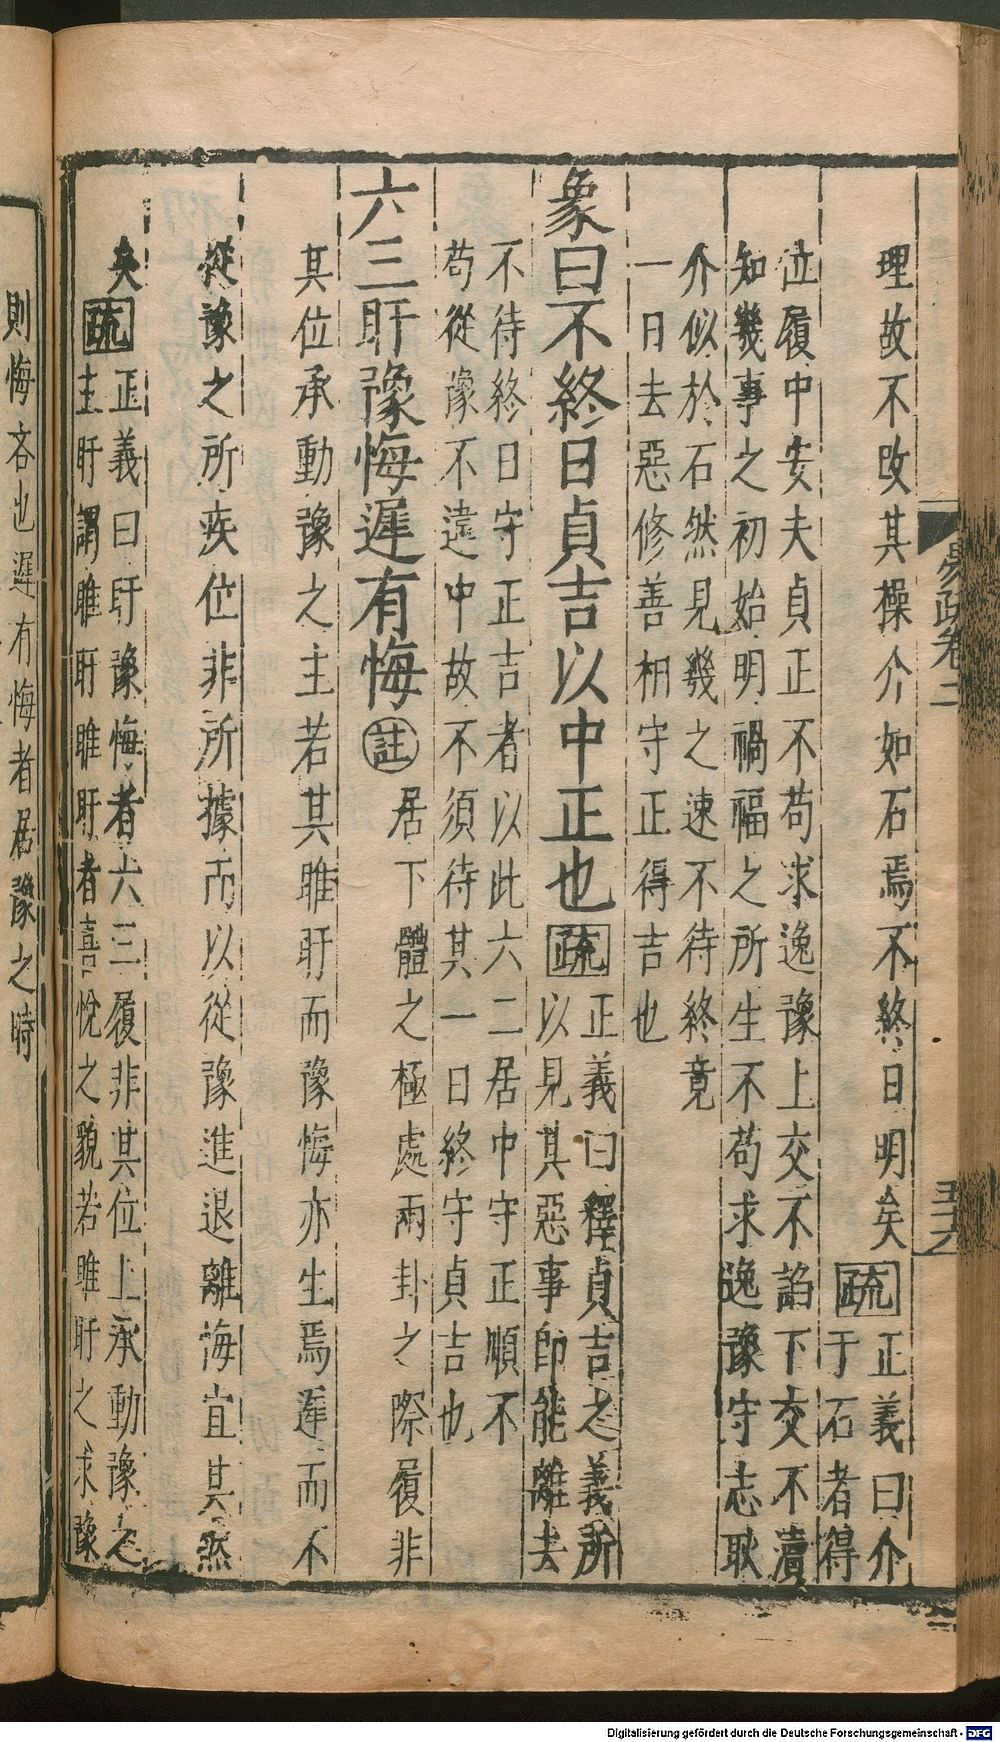 理故不改其操介如石焉不終日明矣疏正義曰介
于石者得
位履中安夫貞正不苟求逸豫上交不諂下交不瀆
知幾事之初始明禍福之所生不苟求逸豫守志耿
介似於石然見幾之速不待終竟
一日去惡修善相守正得吉也
象曰不終日貞吉以中正也疏正義曰釋貞吉之義所
以見其惡事卽能離去
不待終日守正吉者以此六二居中守正順不
苟從豫不違中故不須待其一日終守貞吉也
六三盱豫悔遲有悔註居下體之極處兩卦之際履非
其位承動豫之主若其睢盱而豫悔亦生焉遲而不
從豫之所疾位非所據而以從豫進退離悔宜其然
矣疏正義曰盱豫悔者六三履非其位上承動豫之
主盱謂睢盱睢盱者喜悅之貌若睢盱之求豫
則悔吝也遲有悔者居豫之時
易疏卷二
五十六
Digitalisierung gefördert durch die Deutsche Forschungsgemeinschaft - DFG